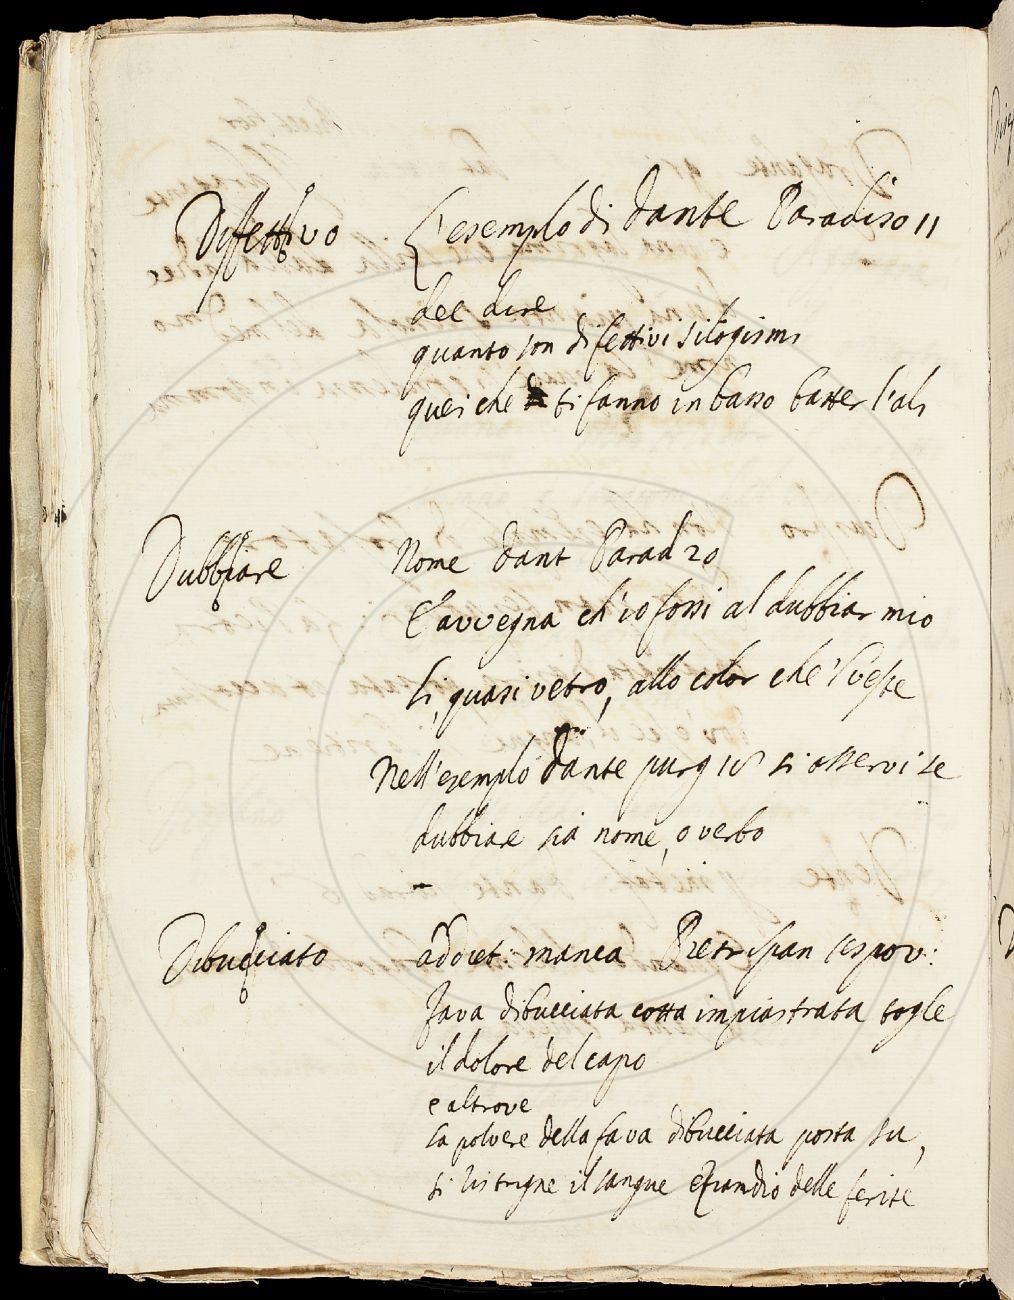 Difettivo L'esemplo di dante Paradiso 11
dee dire
quanto son difettivi silogismi
quei che ti fanno in basso batter l'ali
Dubbiare Nome Dant Parad 20
E avvegna ch'io fossi al dubbiar mio
li, quasi vetro, allo color che 'l veste
Nell'esemplo dante purg si osservi se
dubbiare sia nome, o verbo
Dibucciato adiet: manca Pietr span tes pov:
fava dibucciata cotta impiastrata togle
il dolore del capo
e altrove
la polvere della fava dibucciata posta su,
si ristrigne il sangue eziandio delle ferite